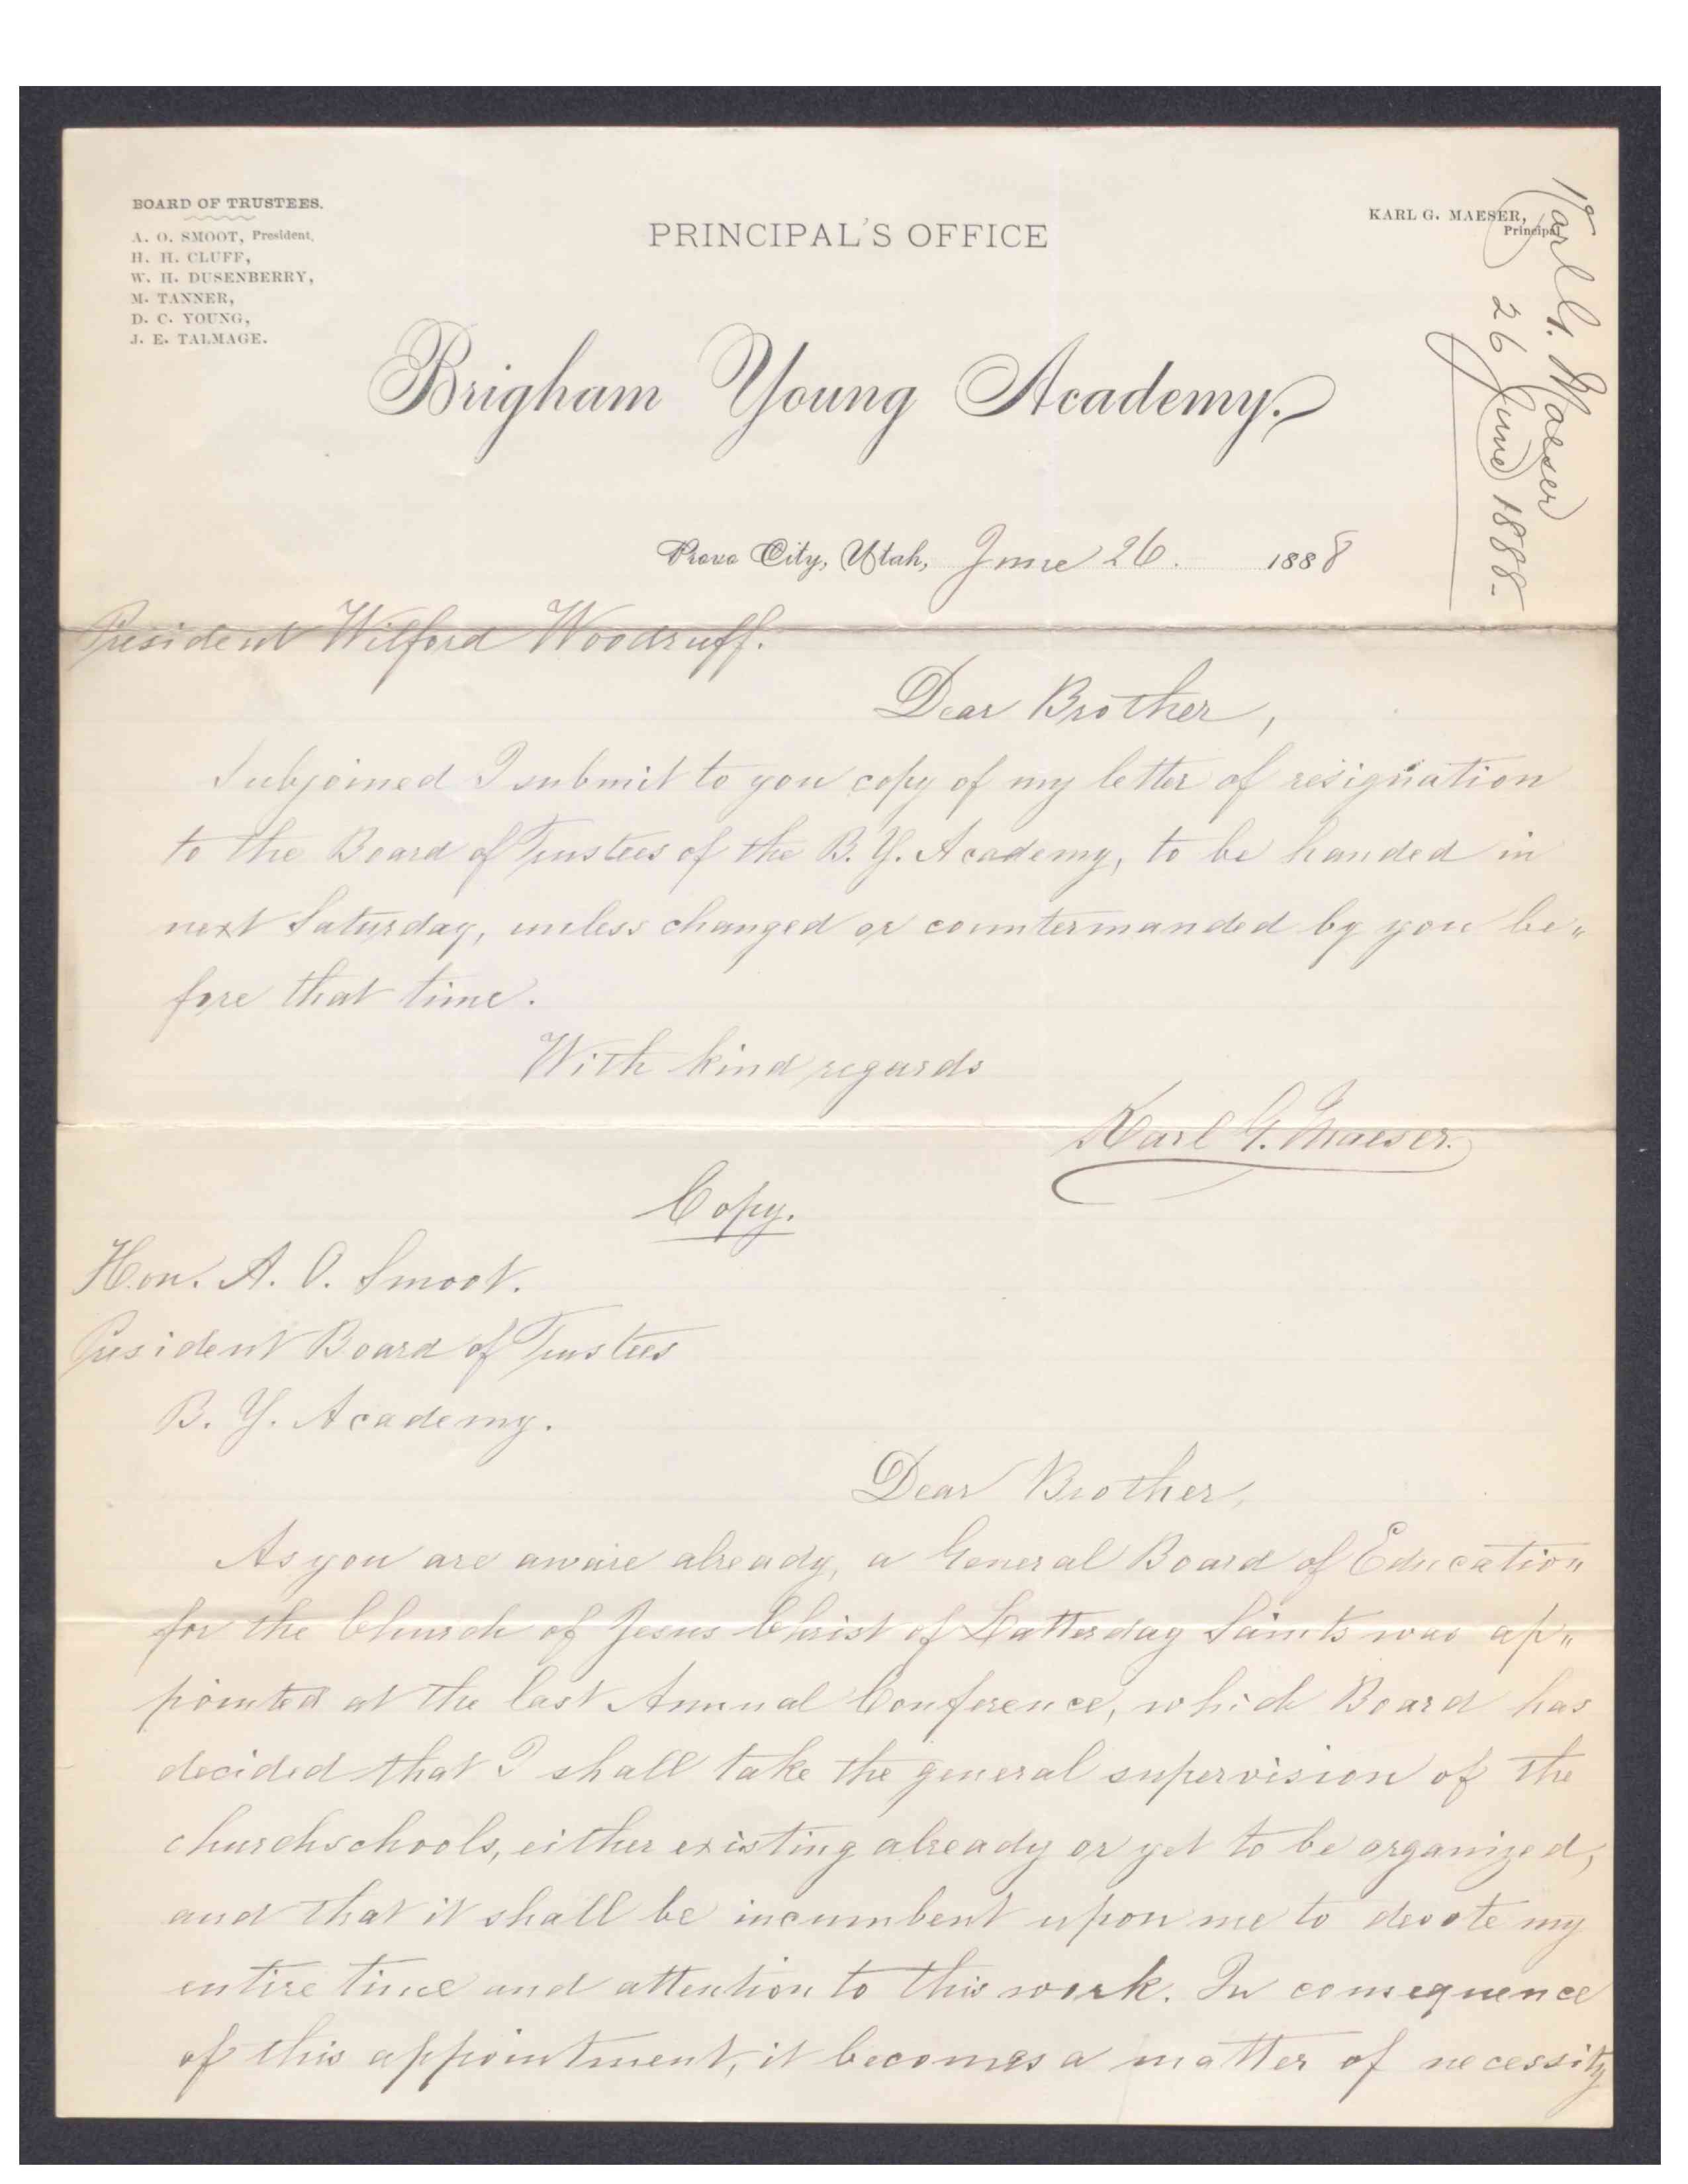 BOARD OF TRUSTEES.
A. O. SMOOT, President,
H. H. CLUFF,
W. H. DUSENBERRY,
M. TANNER,
D. C. YOUNG,
J. E. TALMAGE.
PRINCIPAL'S OFFICE
KARL G. MAESER,
Principal
Karl G. Maeser
26 June 1888.
Brigham Young Academy.
Provo City, Utah, June 26. 1888
President Wilford Woodruff.
Dear Brother,
Subjoined I submit to you copy of my letter of resignation
to the Board of Trustees of the B. Y. Academy, to be handed in
next Saturday, unless changed or countermanded by you be„
fore that time.
With kind regards
Karl G. Maeser.
Copy.
Hon. A. O. Smoot.
President Board of Trustees
B. Y. Academy.
Dear Brother,
As you are aware already, a General Board of Education
for the Church of Jesus Christ of Latterday Saints was ap„
pointed at the last Annual Conference, which Board has
decided that I shall take the general supervision of the
churchschools, either existing already or yet to be organized,
and that it shall be incumbent upon me to devote my
entire time and attention to this work. In consequence
of this appointment, it becomes a matter of necessity